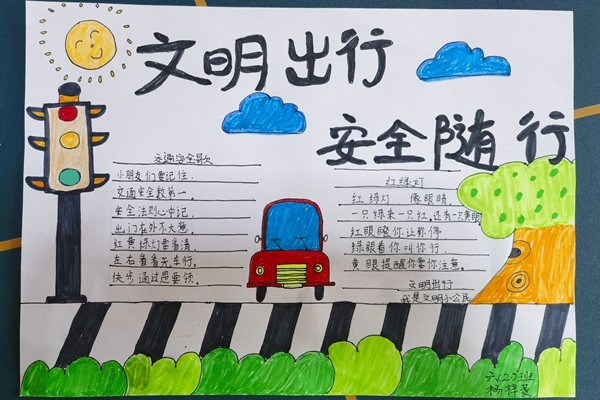 文明出行
安全随行
交通安全歌
小朋友们要记住,
交通安全数第一,
安全法则心中记,
出门在外不大意,
红黄绿灯要看清,
左右看看无车行,
快步通过是要领。
红绿灯
红绿灯 像眼睛,
一只绿来一只红,还有一只黄眼
红眼瞪你让你停
绿眼看你叫你行,
黄眼提醒你要注意。
文明出行
我是文明小公民
六(2)班
杨梓